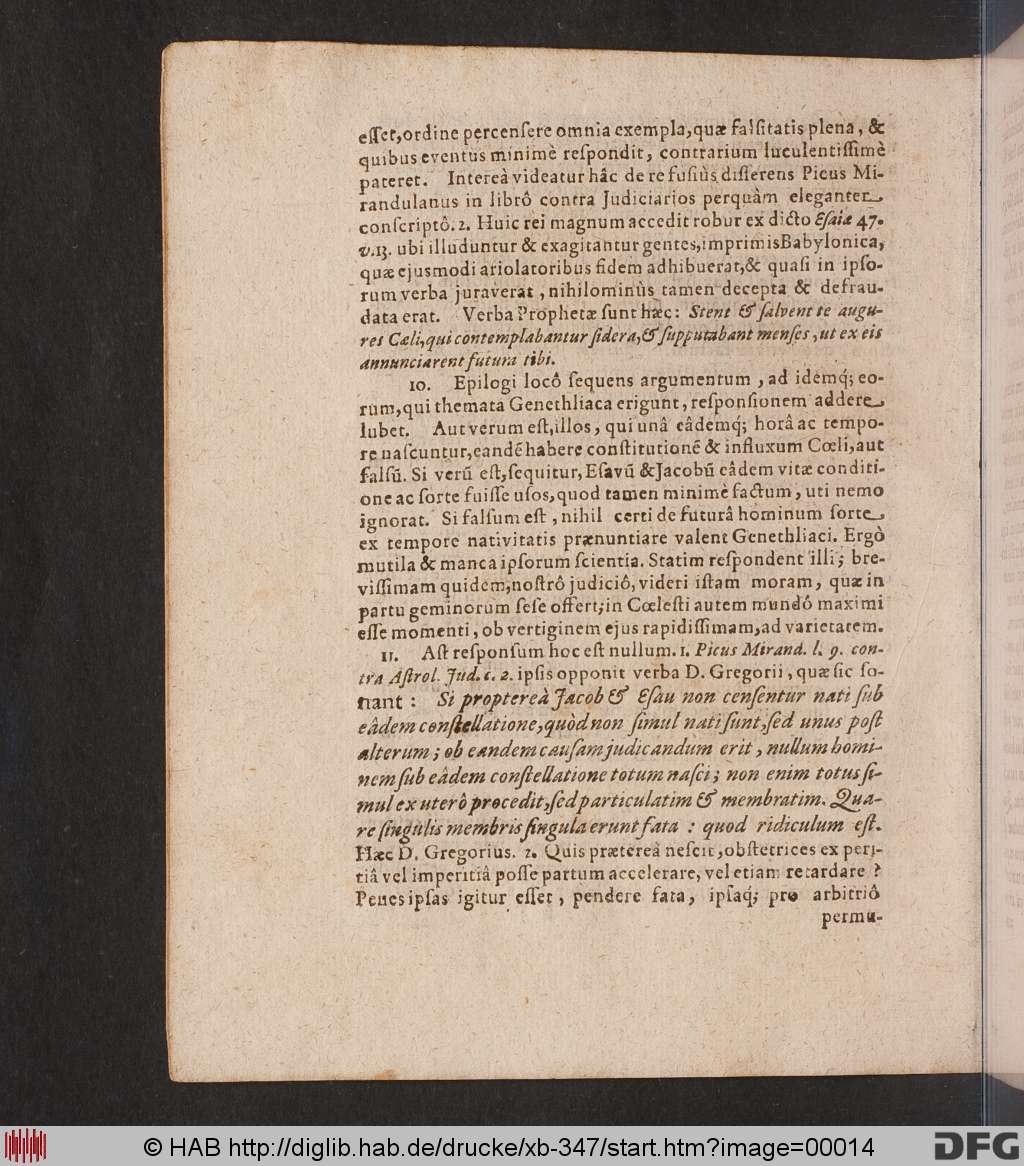 esset,ordine percensere omnia exempla,quæ falsitatis plena, &
quibus eventus minimè respondit, contrarium luculentissimè
pateret. Intereà videatur hâc de re fusiùs disserens Picus Mi-
randulanus in librô contra Judiciarios perquàm eleganter
conscriptô. 2. Huic rei magnum accedit robur ex dicto Esaiæ 47.
v.13. ubi illuduntur & exagitantur gentes,imprimis Babylonica,
quæ ejusmodi ariolatoribus fidem adhibuerat,& quasi in ipso-
rum verba juraverat, nihilominùs tamen decepta & defrau-
data erat. Verba Prophetæ sunt hæc: Stent & salvent te augu-
res Cæli,qui contemplabantur sidera,& supputabant menses, ut ex eis
annunciarent futura tibi.
10. Epilogi locô sequens argumentum, ad idemq́; eo-
rum,qui themata Genethliaca erigunt, responsionem addere
lubet. Aut verum est,illos, qui unâ eâdemq́; horâ ac tempo-
re nascuntur,eandẽ habere constitutionẽ & influxum Cœli,aut
falsũ. Si verũ est,sequitur, Esavũ & Jacobũ eâdem vitæ conditi-
one ac sorte fuisse usos,quod tamen minimè factum, uti nemo
ignorat. Si falsum est, nihil certi de futurâ hominum sorte
ex tempore nativitatis prænuntiare valent Genethliaci. Ergò
mutila & manca ipsorum scientia. Statim respondent illi; bre-
vissimam quidem,nostrô judiciô, videri istam moram, quæ in
partu geminorum sese offert;in Cœlesti autem mundô maximi
esse momenti, ob vertiginem ejus rapidissimam,ad varietatem.
11. Ast responsum hoc est nullum. 1. Picus Mirand. l. 9. con-
tra Astrol. Jud. c. 2. ipsis opponit verba D. Gregorii, quæ sic so-
nant: Si proptereà Jacob & Esau non censentur nati sub
eâdem constellatione,quòd non simul nati sunt,sed unus post
alterum; ob eandem causam judicandum erit, nullum homi-
nem sub eâdem constellatione totum nasci; non enim totus si-
mul ex uterô procedit,sed particulatim & membratim. Qua-
re singulis membris singula erunt fata: quod ridiculum est.
Hæc D. Gregorius. 2. Quis prætereà nescit, obstetrices ex peri-
tiâ vel imperitiâ posse partum accelerare, vel etiam retardare?
Penes ipsas igitur esset, pendere fata, ipsaq́; pro arbitriô
permu-
© HAB http://diglib.hab.de/drucke/xb-347/start.htm?image=00014
DFG